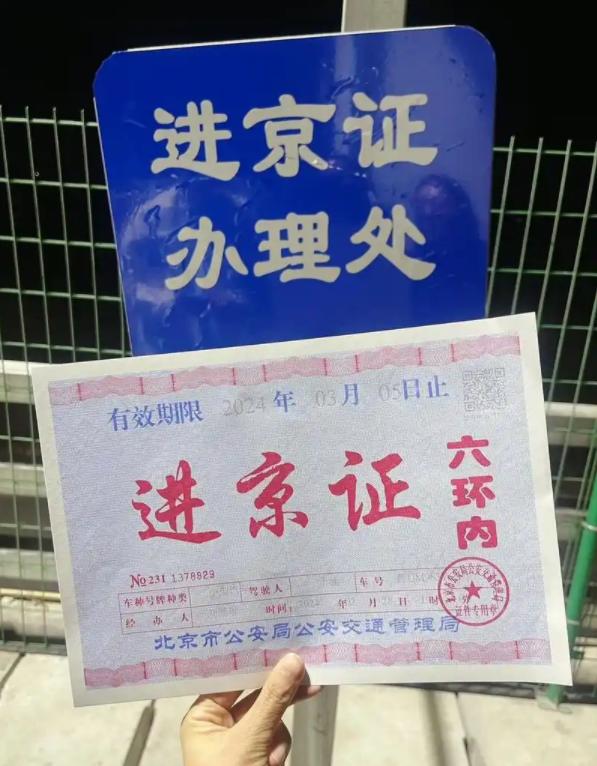 进京证
办理处
有效期限 2024年 03月 05日止
进京证
六环内
No 231 1378829
车种号牌种类 驾驶人 车号
经办人 时间: 年 月 时
北京市公安局公安交通管理局
证件专用章